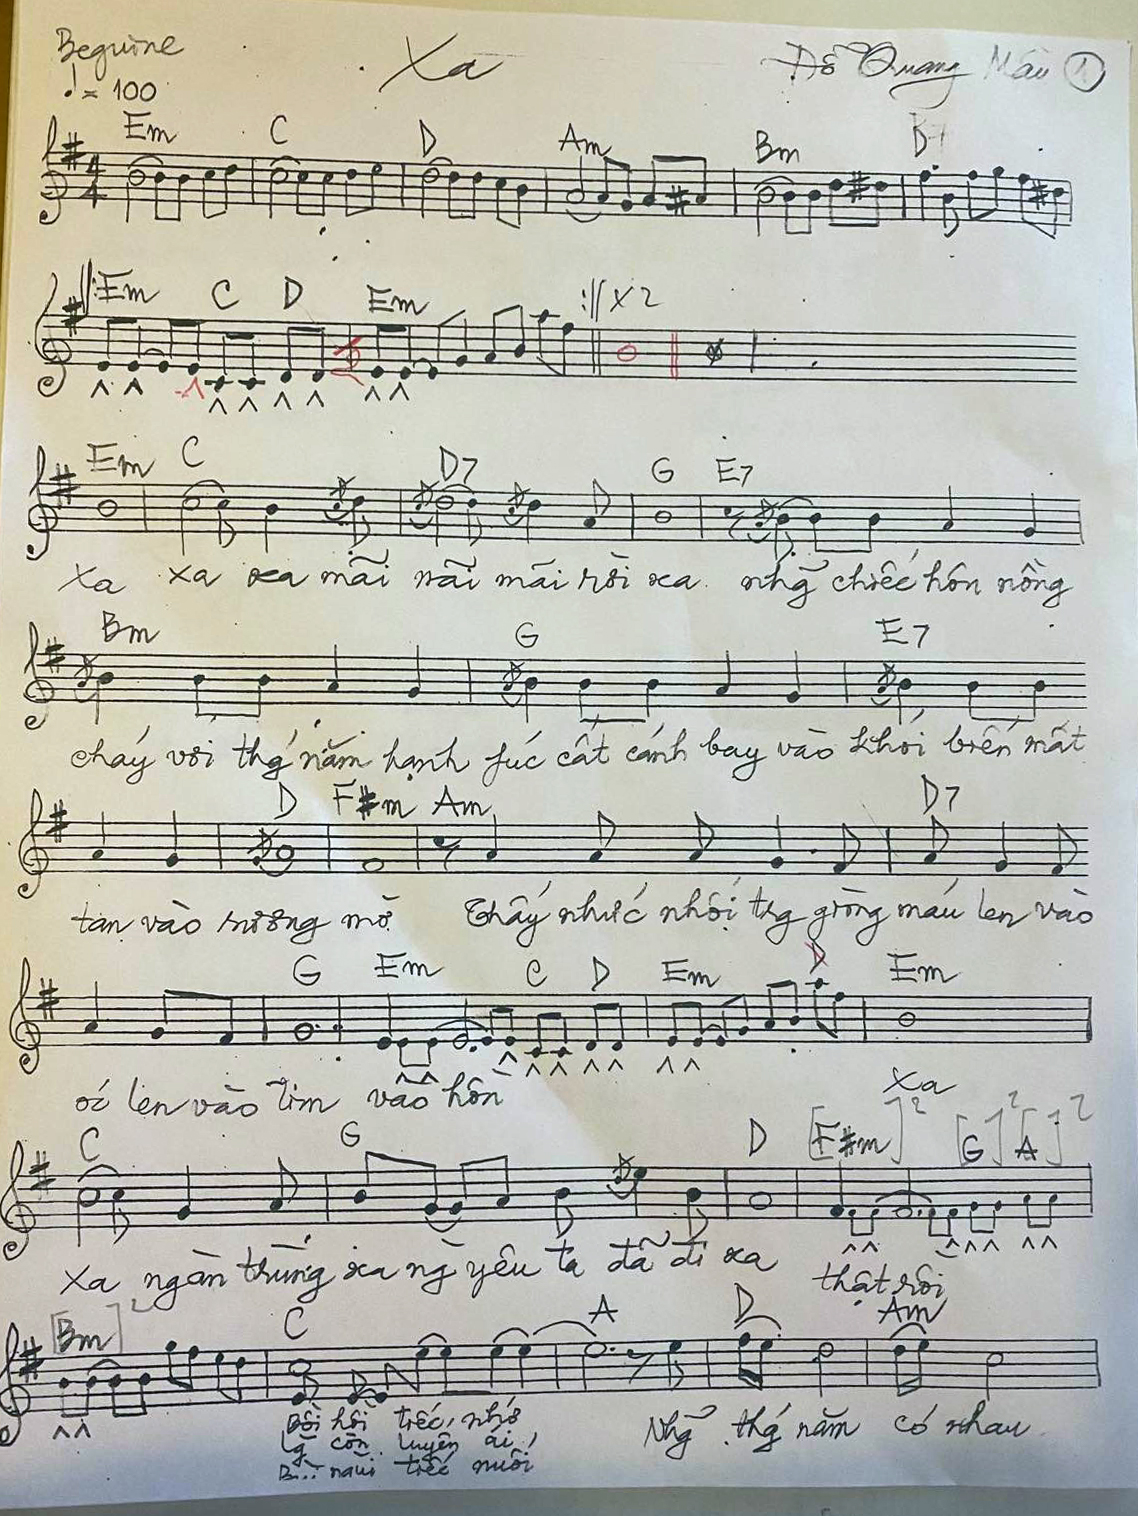 Beguine
Xa
Đỗ Quang Mão ①
♩= 100
Em C D Am Bm B7
4
4
Em C D Em X2
Em C D7 G E7
Xa xa xa mãi mãi mãi rồi xa. nhữ chiếc hôn nồng
Bm G E7
cháy với thá năm hạnh fúc cất cánh bay vào khói biến mất
D F#m Am D7
tan vào sương mờ thấy nhức nhối trg giòng máu len vào
G Em C D Em D Em
len vào tim vào hồn
Xa
C G D [F#m]2 [G]2 [A]2
Xa ngàn trùng xa ng yêu ta đã đi xa thật rồi
[Bm]2 C A D Am
Bồi hồi tiếc nhớ Nhữ thá năm có nhau
còn luyến ái
tiếc nuối